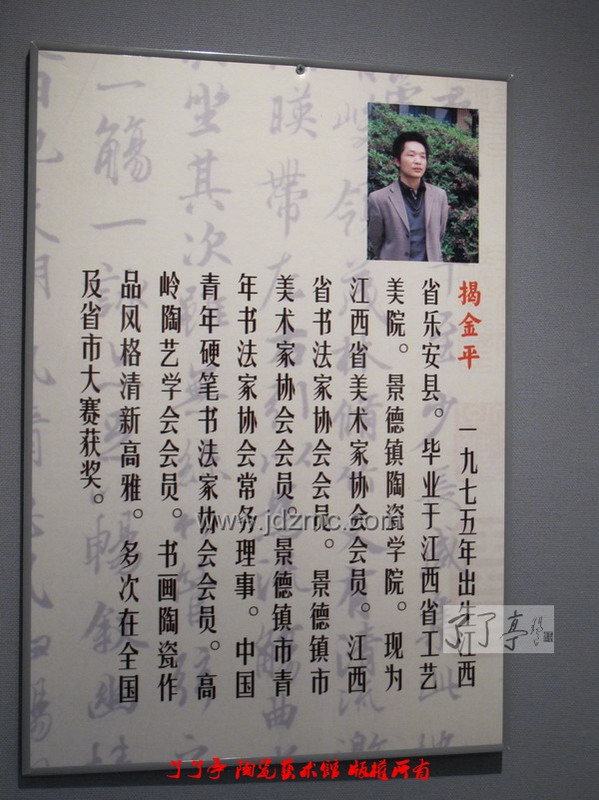 揭金平　一九七五年出生江西
省乐安县。毕业于江西省工艺
美院。景德镇陶瓷学院。现为
江西省美术家协会会员。江西
省书法家协会会员。景德镇市
美术家协会会员。景德镇市青
年书法家协会常务理事。中国
青年硬笔书法家协会会员。高
岭陶艺学会会员。书画陶瓷作
品风格清新高雅。多次在全国
及省市大赛获奖。
www.jd2mc.com
了了亭
了了亭 陶瓷美术馆 版權所有